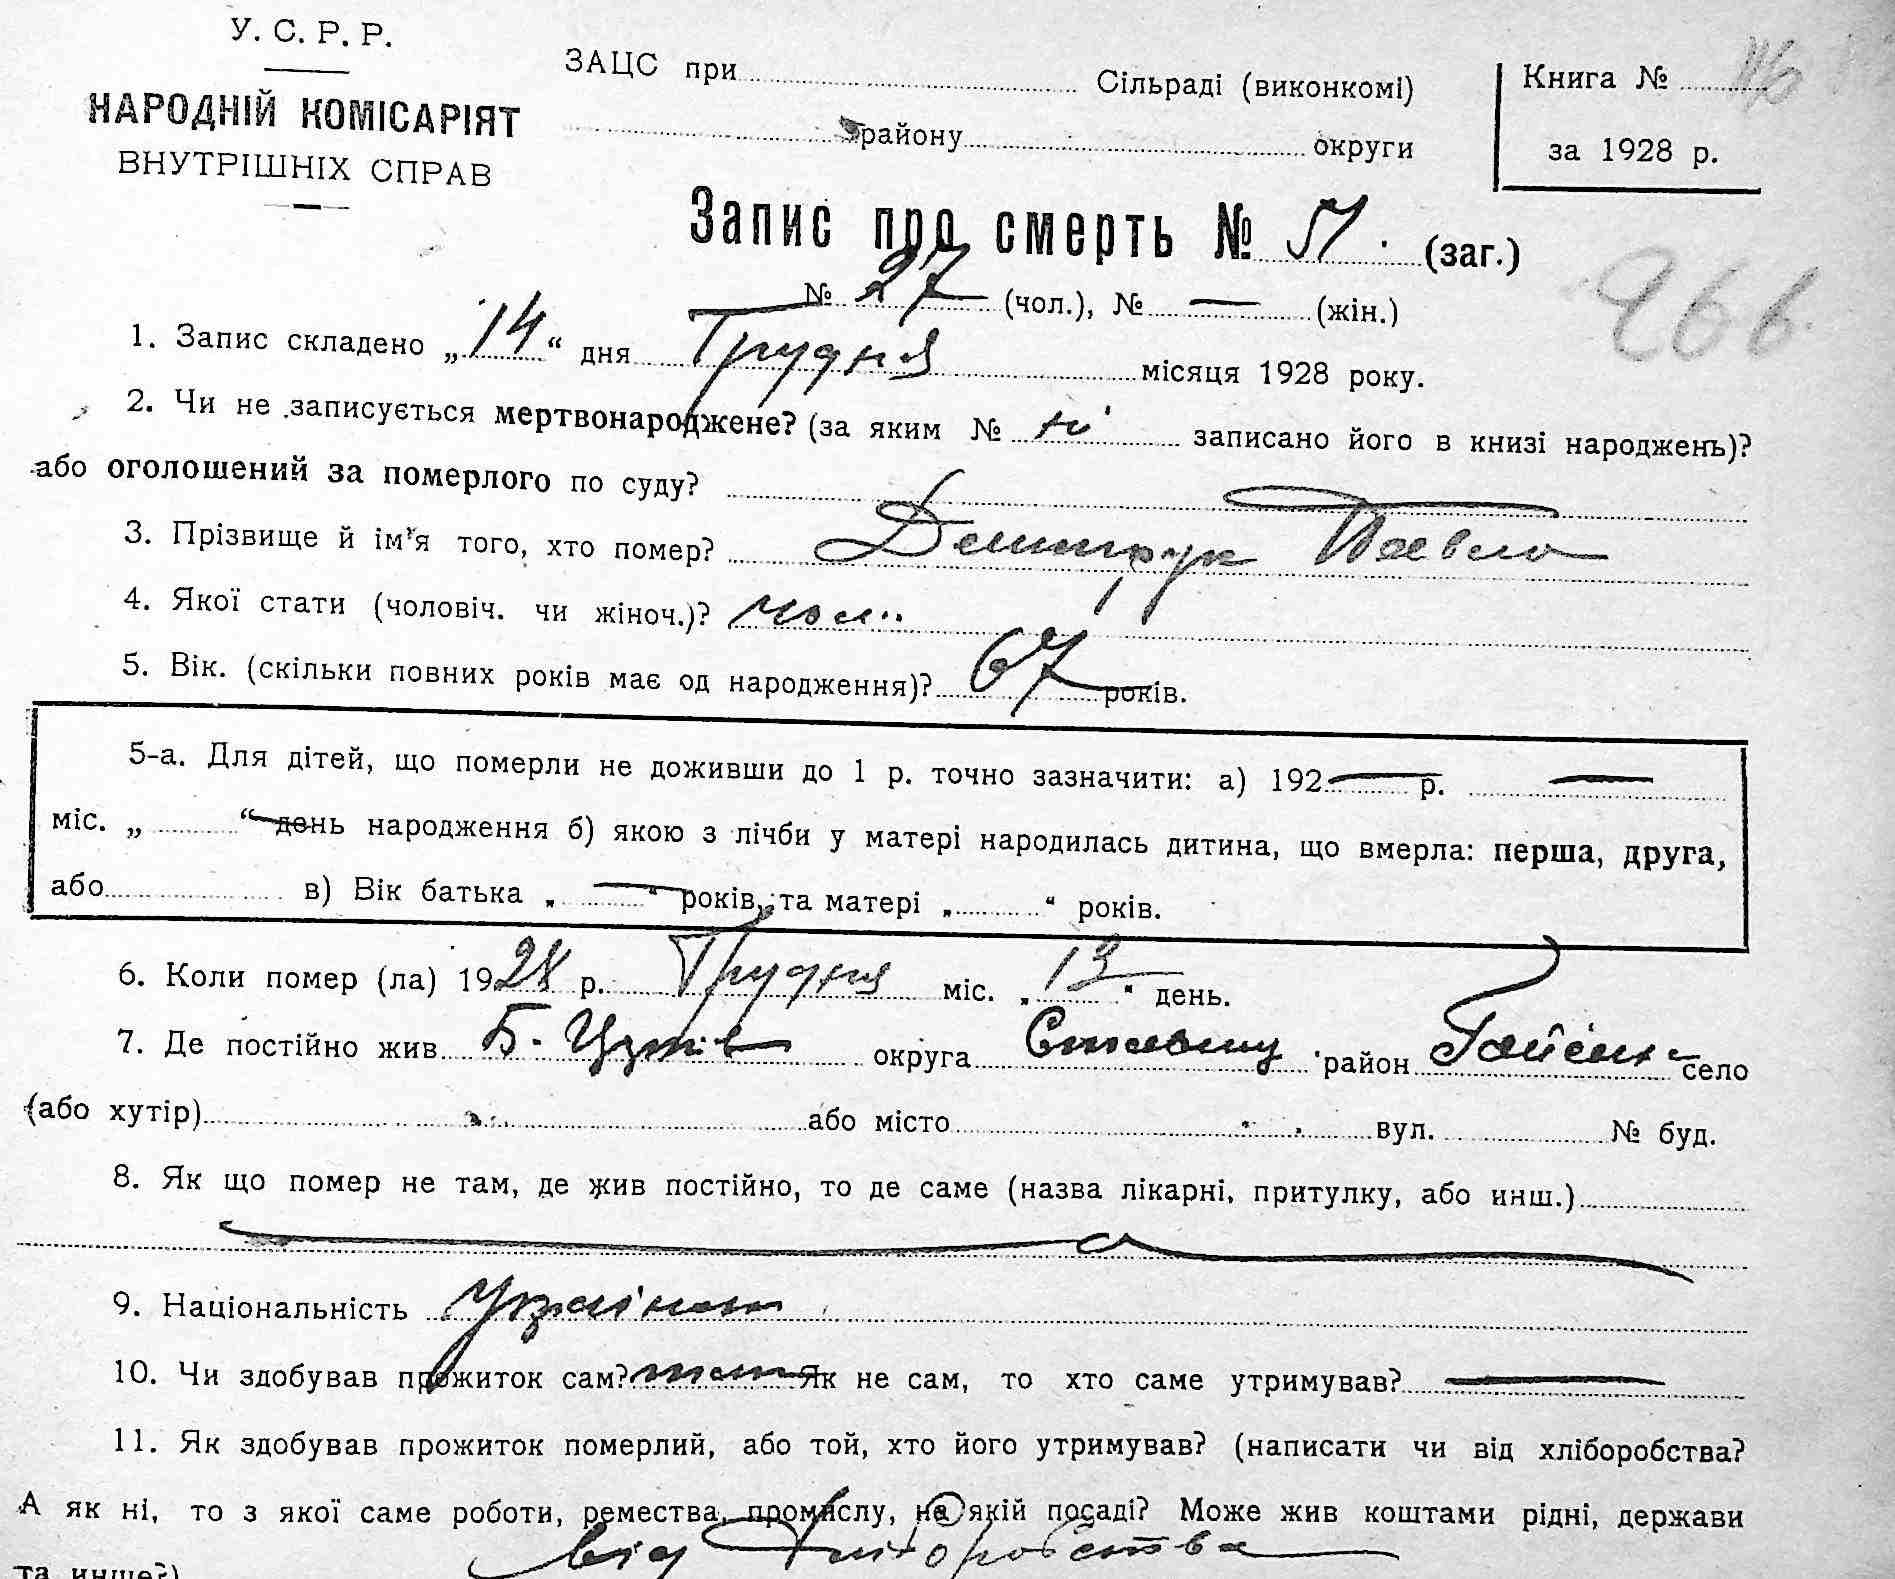 У. С. Р. Р.
НАРОДНІЙ КОМІСАРІЯТ
ВНУТРІШНІХ СПРАВ
ЗАЦС при Сільраді (виконкомі)
району округи
Книга № 116
за 1928 р.
Запис про смерть № 51. (заг.)
№ 27 (чол.), № — (жін.)
266
1. Запис складено „14“ дня Грудня місяця 1928 року.
2. Чи не записується мертвонароджене? (за яким № ні записано його в книзі народжень)?
або оголошений за померлого по суду?
3. Прізвище й ім'я того, хто помер? Демитрук Павло
4. Якої стати (чоловіч. чи жіноч.)? чол.
5. Вік. (скільки повних років має од народження)? 67 років.
5-а. Для дітей, що померли не доживши до 1 р. точно зазначити: а) 192— р. —
міс. „ “ день народження б) якою з лічби у матері народилась дитина, що вмерла: перша, друга,
або в) Вік батька „—“ років, та матері „ “ років.
6. Коли помер (ла) 1928 р. Грудня міс. „13“ день.
7. Де постійно жив Б. Церків округа Ставищ район Гайсин село
(або хутір) або місто вул. № буд.
8. Як що помер не там, де жив постійно, то де саме (назва лікарні, притулку, або инш.)
9. Національність Українец
10. Чи здобував прожиток сам? так Як не сам, то хто саме утримував? —
11. Як здобував прожиток померлий, або той, хто його утримував? (написати чи від хліборобства?
А як ні, то з якої саме роботи, ремества, промислу, на якій посаді? Може жив коштами рідні, держави
та инше?) від хліборобства